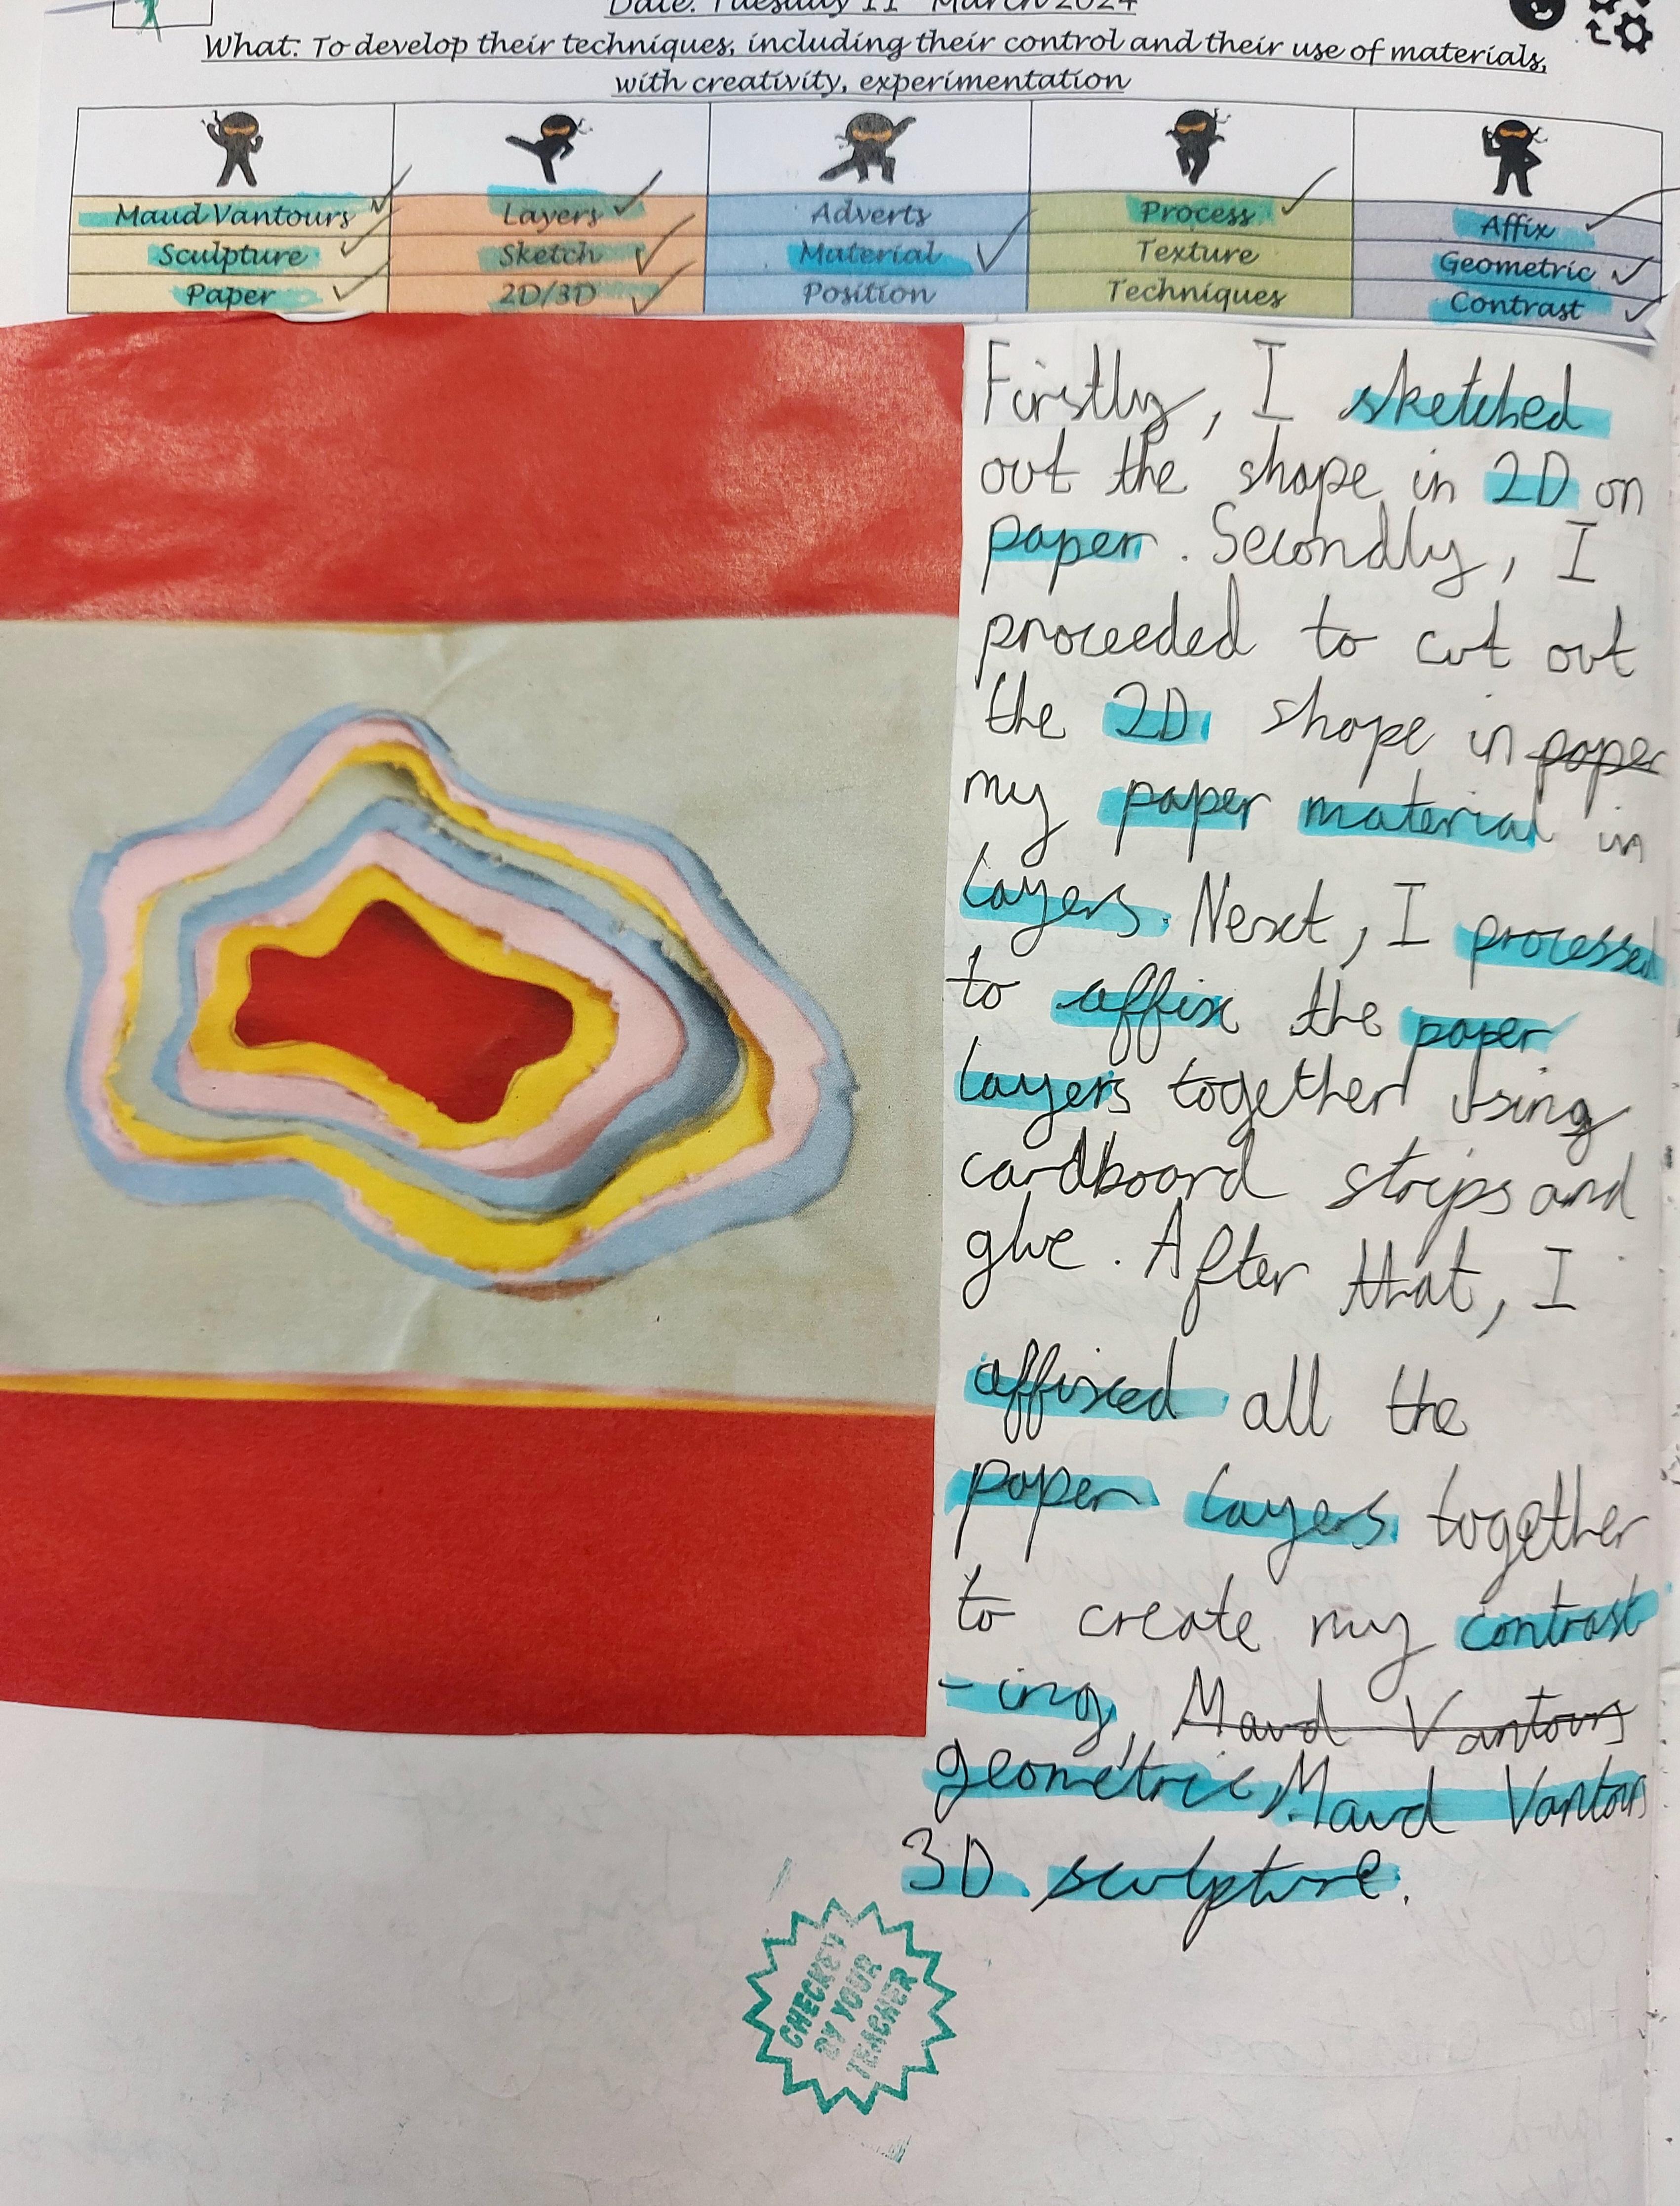 Date: Tuesday 11 March 2024
What: To develop their techniques, including their control and their use of materials,
with creativity, experimentation
Maud Vantours Layers Adverts Process Affix
Sculpture Sketch Material Texture Geometric
Paper 2D/3D Position Techniques Contrast
Firstly, I sketched
out the shape in 2D on
paper. Secondly, I
proceeded to cut out
the 2D shape in paper
my paper material in
layers. Next, I processed
to affix the paper
layers together using
cardboard strips and
glue. After that, I
affixed all the
paper layers together
to create my contrast
-ing, Maud Vantours
geometric, Maud Vantours
3D sculpture.
CHECKED
BY YOUR
TEACHER